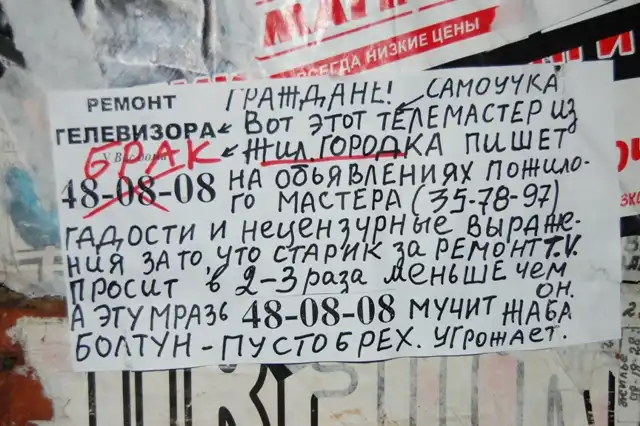 ВСЕГДА НИЗКИЕ ЦЕНЫ
РЕМОНТ
ТЕЛЕВИЗОРА
У Вас дома
БРАК
48-08-08
ГРАЖДАНЕ! САМОУЧКА
ВОТ ЭТОТ ТЕЛЕМАСТЕР ИЗ
ЖИЛ. ГОРОДКА ПИШЕТ
НА ОБЪЯВЛЕНИЯХ ПОЖИЛО-
ГО МАСТЕРА (35-78-97)
ГАДОСТИ И НЕЦЕНЗУРНЫЕ ВЫРАЖЕ-
НИЯ ЗА ТО, ЧТО СТАРИК ЗА РЕМОНТ T.V.
ПРОСИТ в 2-3 раза меньше чем
ОН.
А ЭТУ МРАЗЬ 48-08-08 МУЧИТ ЖАБА
БОЛТУН - ПУСТОБРЕХ. УГРОЖАЕТ.